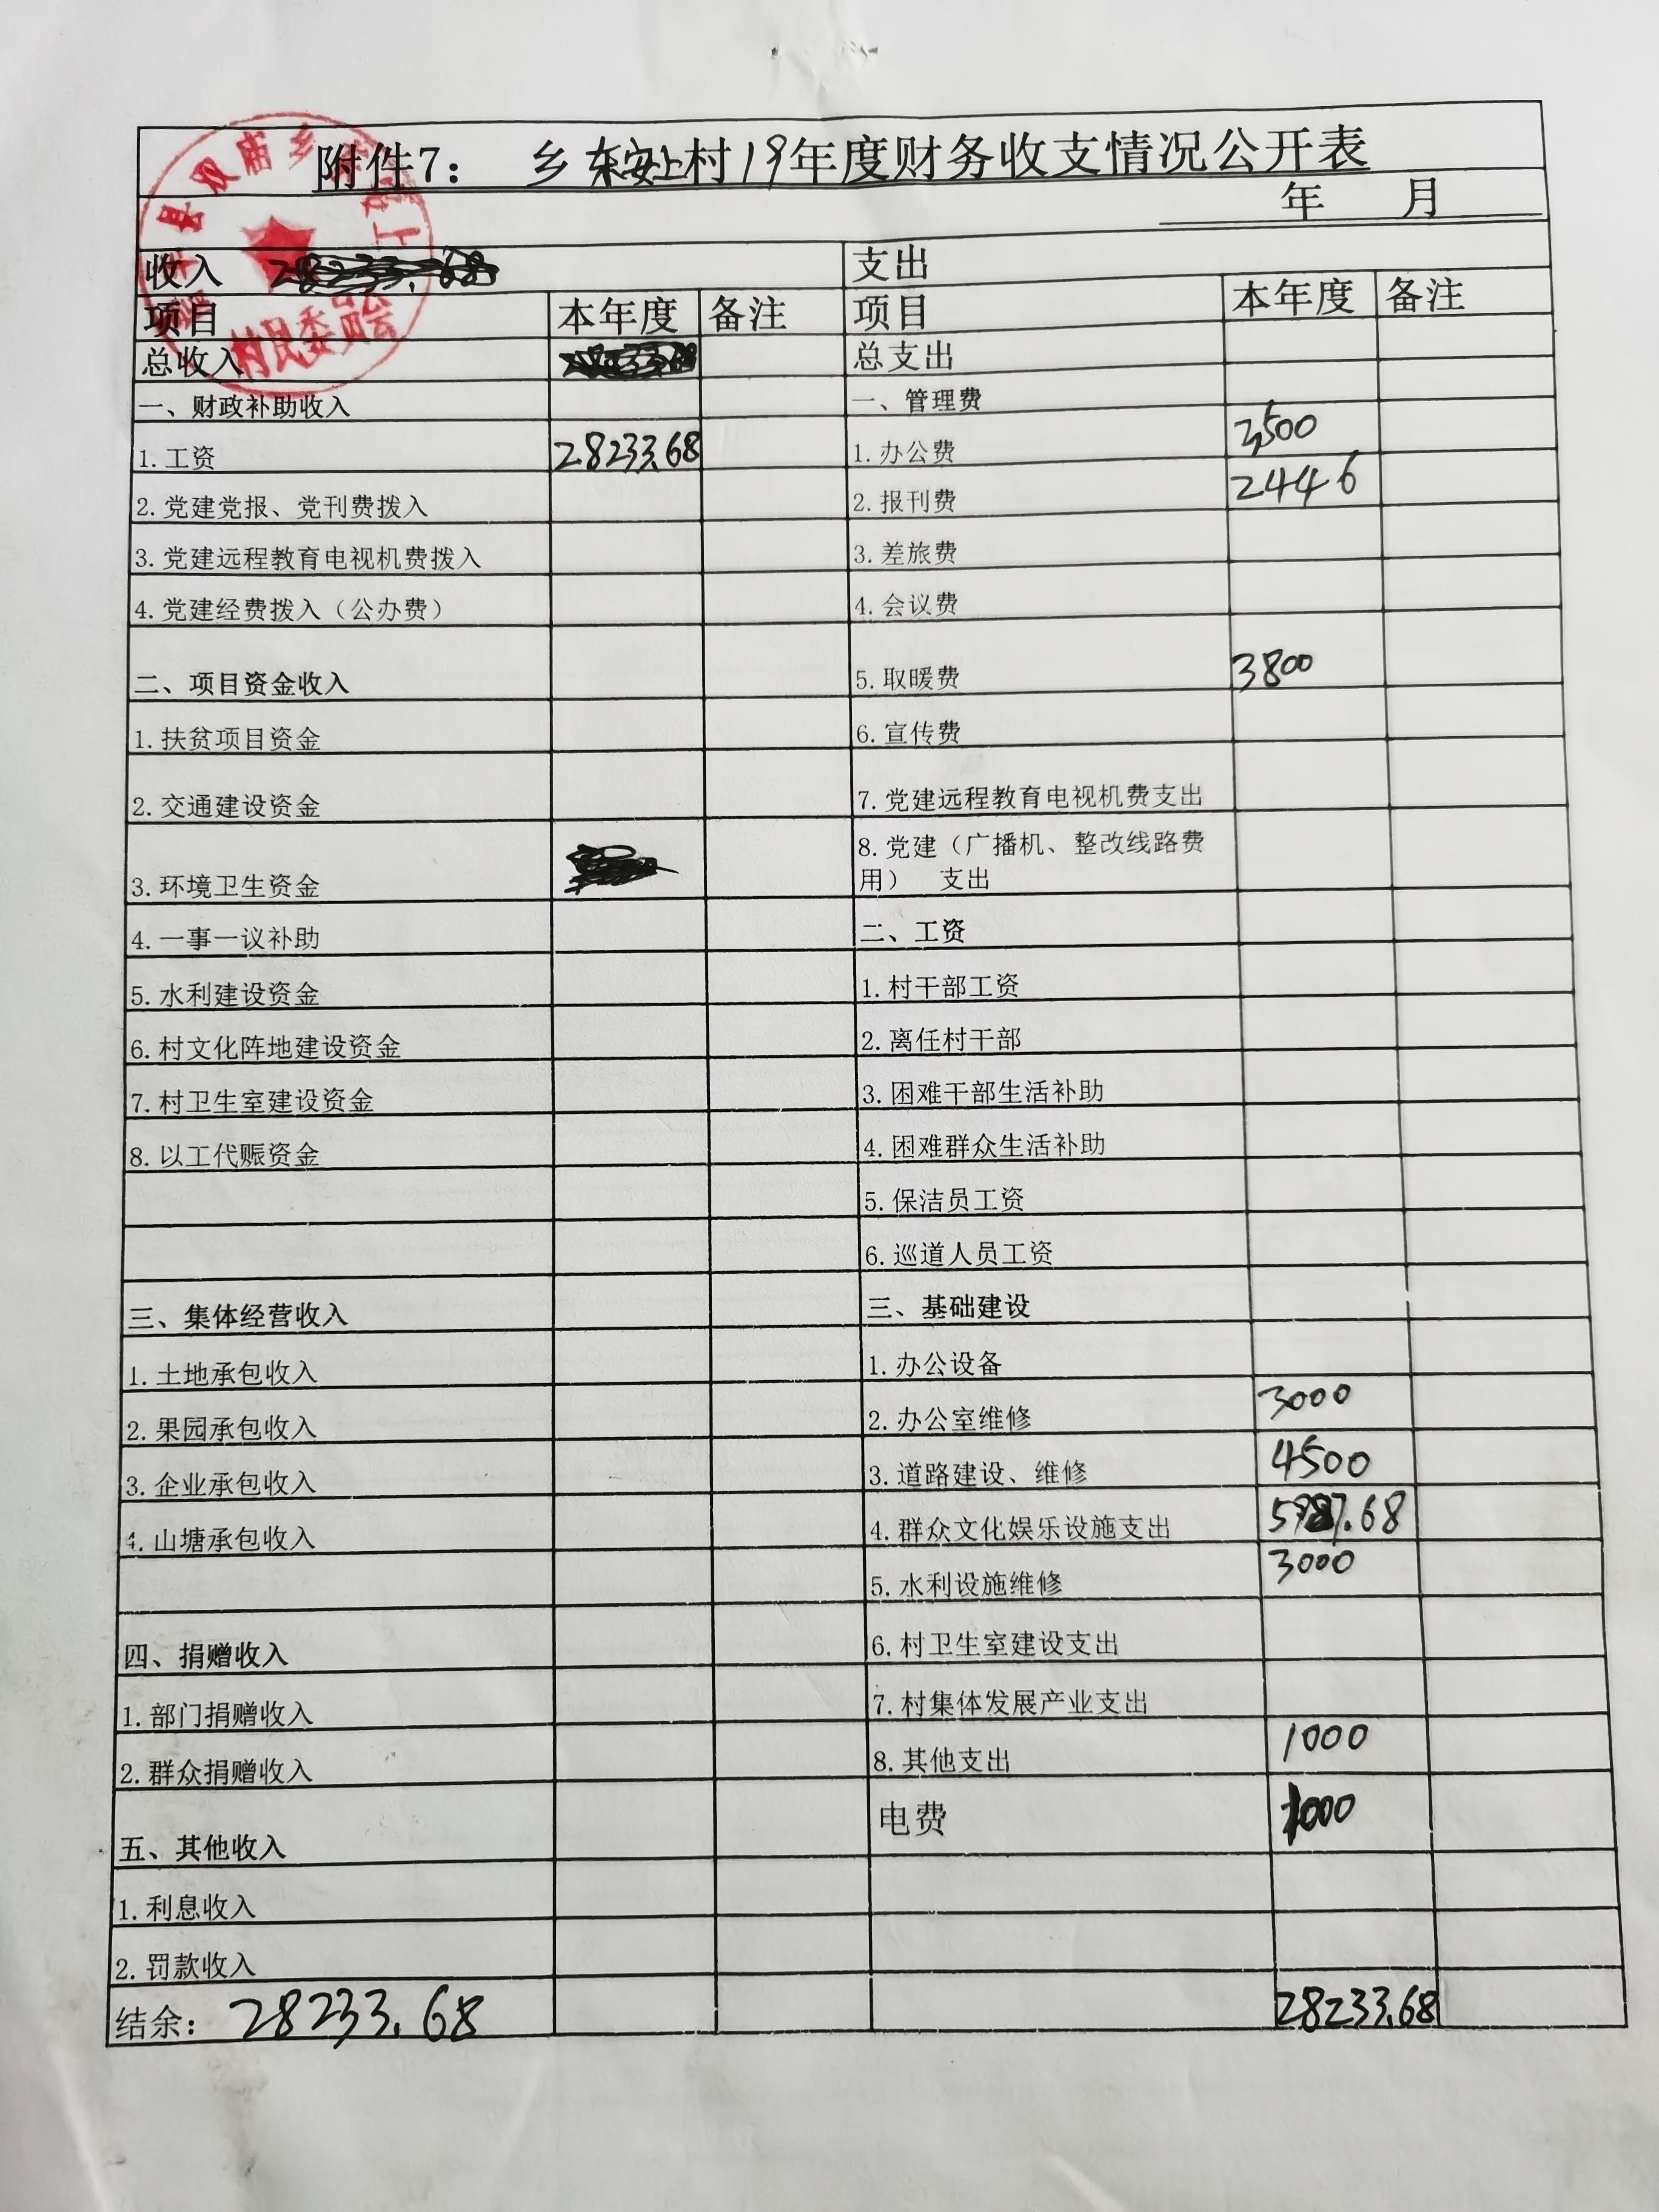 附件7： 乡东安上村19年度财务收支情况公开表
年 月
收入 支出
项目 本年度 备注 项目 本年度 备注
总收入 总支出
一、财政补助收入 一、管理费
1.工资 28233.68 1.办公费 3500
2.党建党报、党刊费拨入 2.报刊费 2446
3.党建远程教育电视机费拨入 3.差旅费
4.党建经费拨入（公办费） 4.会议费
二、项目资金收入 5.取暖费 3800
1.扶贫项目资金 6.宣传费
2.交通建设资金 7.党建远程教育电视机费支出
3.环境卫生资金 8.党建（广播机、整改线路费
用） 支出
4.一事一议补助 二、工资
5.水利建设资金 1.村干部工资
6.村文化阵地建设资金 2.离任村干部
7.村卫生室建设资金 3.困难干部生活补助
8.以工代赈资金 4.困难群众生活补助
5.保洁员工资
6.巡道人员工资
三、集体经营收入 三、基础建设
1.土地承包收入 1.办公设备
2.果园承包收入 2.办公室维修 3000
3.企业承包收入 3.道路建设、维修 4500
4.山塘承包收入 4.群众文化娱乐设施支出
5.水利设施维修 3000
四、捐赠收入 6.村卫生室建设支出
1.部门捐赠收入 7.村集体发展产业支出
2.群众捐赠收入 8.其他支出 1000
五、其他收入 电费 1000
1.利息收入
2.罚款收入
结余： 28233.68 28233.68
村民委员会